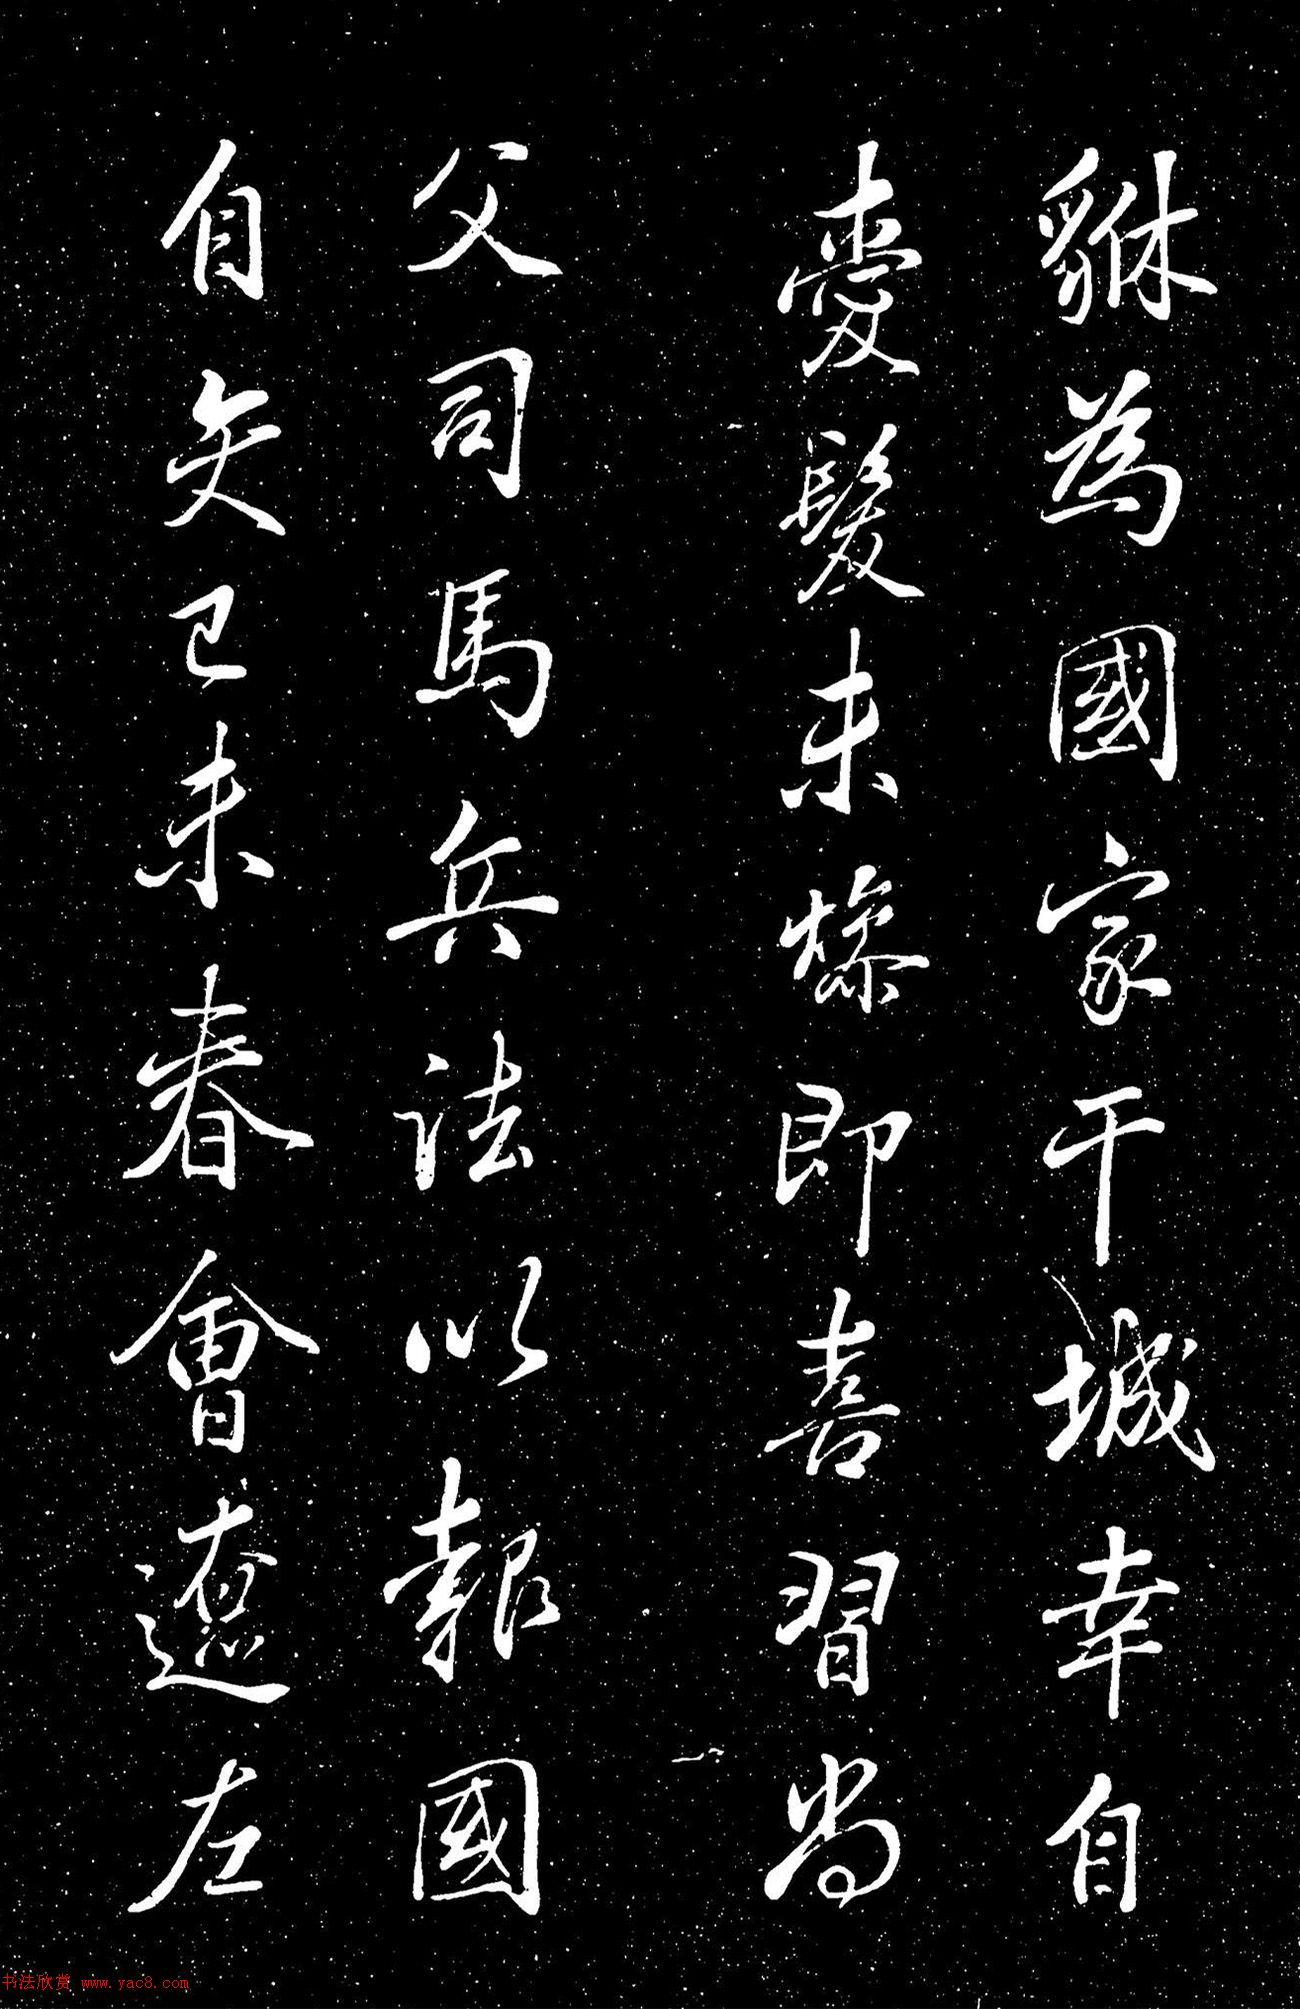 貅為國家干城幸自
㥯髮未燥即喜習尚
父司馬兵法以報國
自矢己未春會遼左
书法欣赏 www.yac8.com